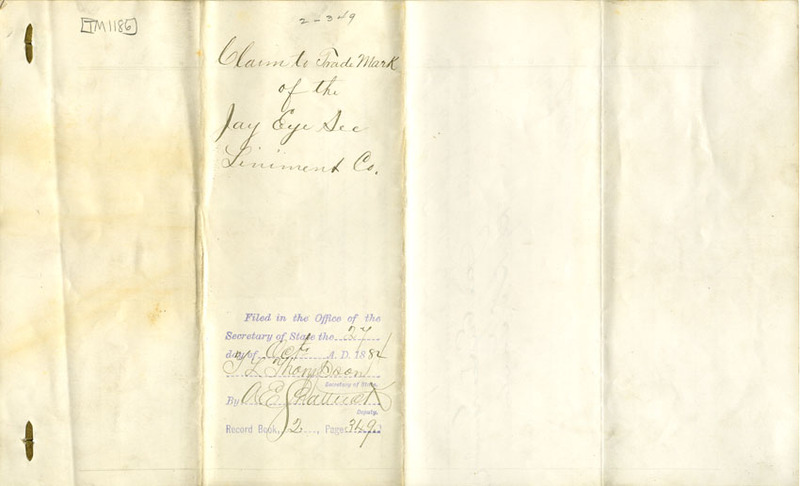 TM1186
2-349
Claim to Trade Mark
of the
Jay Eye See
Liniment Co.
Filed in the Office of the
Secretary of State the
day of Oct A. D. 188
T L Thompson
Secretary of State.
By A E
Deputy.
Record Book, 2, Page 349